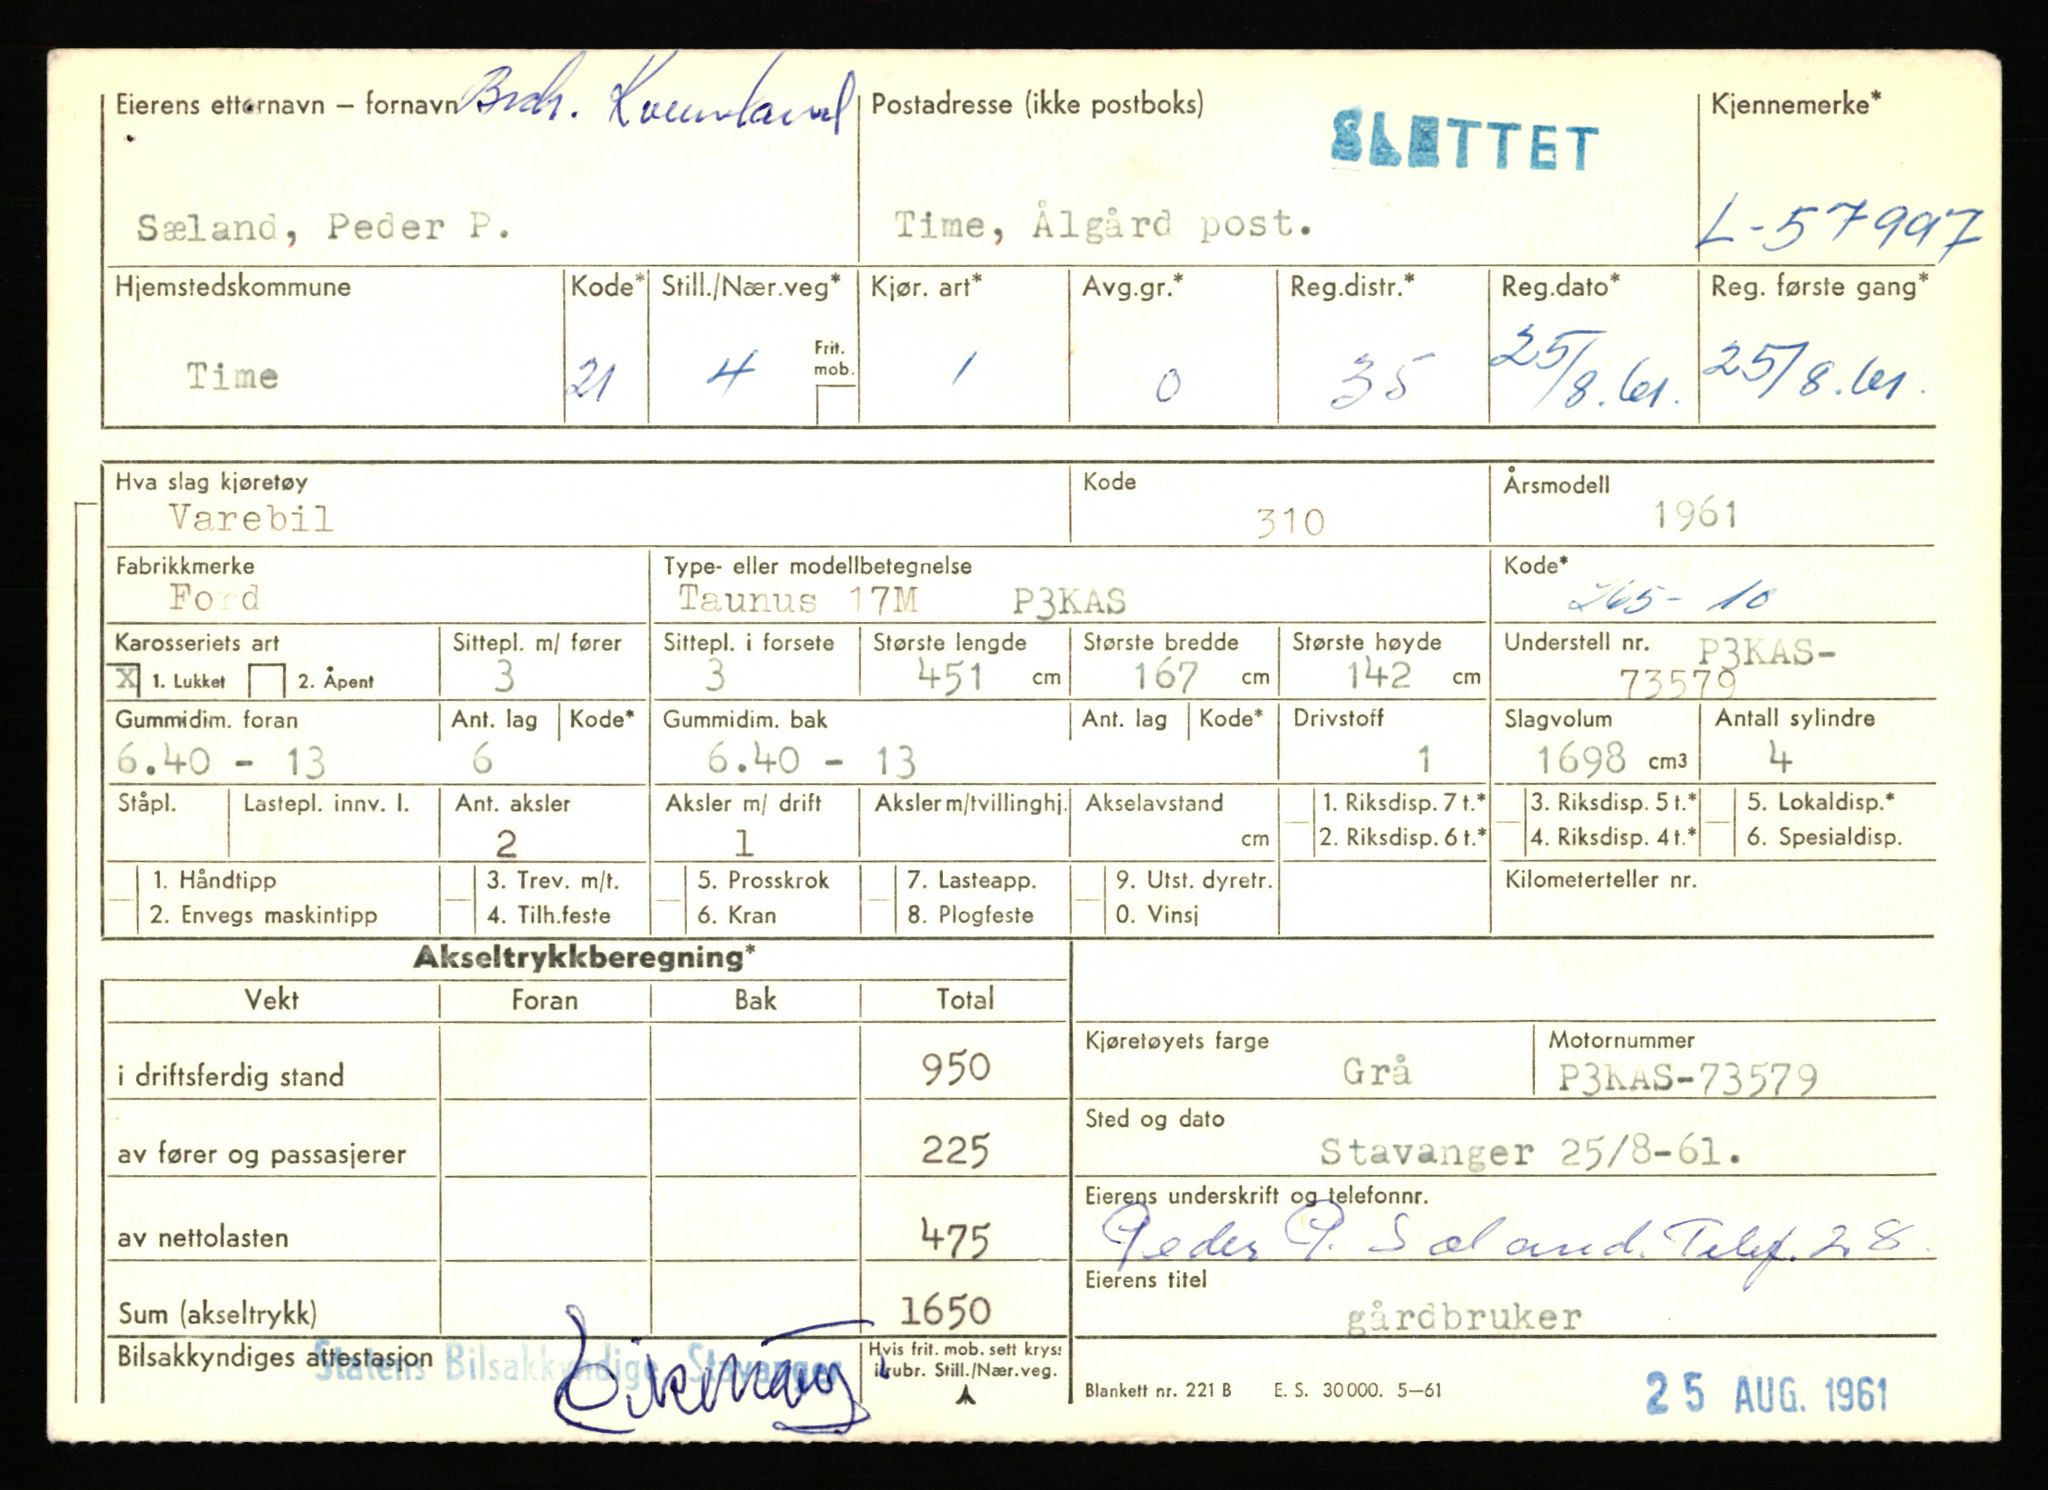 Eierens etternavn – fornavn Brdr. Kverneland
Postadresse (ikke postboks)
SLETTET
Kjennemerke*
Sæland, Peder P.
Time, Ålgård post.
L-57997
Hjemstedskommune Kode* Still./Nær.veg* Kjør. art* Avg.gr.* Reg.distr.* Reg.dato* Reg. første gang*
Frit. mob.
Time 21 4 1 0 35 25/8.61. 25/8.61.
Hva slag kjøretøy Kode Årsmodell
Varebil 310 1961
Fabrikkmerke Type- eller modellbetegnelse Kode*
Ford Taunus 17M P3KAS 265-10
Karosseriets art Sittepl. m/ fører Sittepl. i forsete Største lengde Største bredde Største høyde Understell nr. P3KAS-
X 1. Lukket 2. Åpent 3 3 451 cm 167 cm 142 cm 73579
Gummidim. foran Ant. lag Kode* Gummidim. bak Ant. lag Kode* Drivstoff Slagvolum Antall sylindre
6.40 - 13 6 6.40 - 13 1 1698 cm3 4
Ståpl. Lastepl. innv. l. Ant. aksler Aksler m/ drift Aksler m/tvillinghj. Akselavstand 1. Riksdisp. 7 t.* 3. Riksdisp. 5 t.* 5. Lokaldisp.*
2 1 cm 2. Riksdisp. 6 t.* 4. Riksdisp. 4 t.* 6. Spesialdisp.
1. Håndtipp 3. Trev. m/t. 5. Prosskrok 7. Lasteapp. 9. Utst. dyretr. Kilometerteller nr.
2. Envegs maskintipp 4. Tilh.feste 6. Kran 8. Plogfeste 0. Vinsj
Akseltrykkberegning*
Vekt Foran Bak Total
i driftsferdig stand 950
av fører og passasjerer 225
av nettolasten 475
Sum (akseltrykk) 1650
Bilsakkyndiges attestasjon
Statens Bilsakkyndige Stavanger
Hvis frit. mob. sett kryss
i rubr. Still./Nær.veg.
Kjøretøyets farge Motornummer
Grå P3KAS-73579
Sted og dato
Stavanger 25/8-61.
Eierens underskrift og telefonnr.
Peder P. Sæland. Telef. 28.
Eierens titel
gårdbruker
Blankett nr. 221 B E. S. 30000. 5–61
25 AUG. 1961